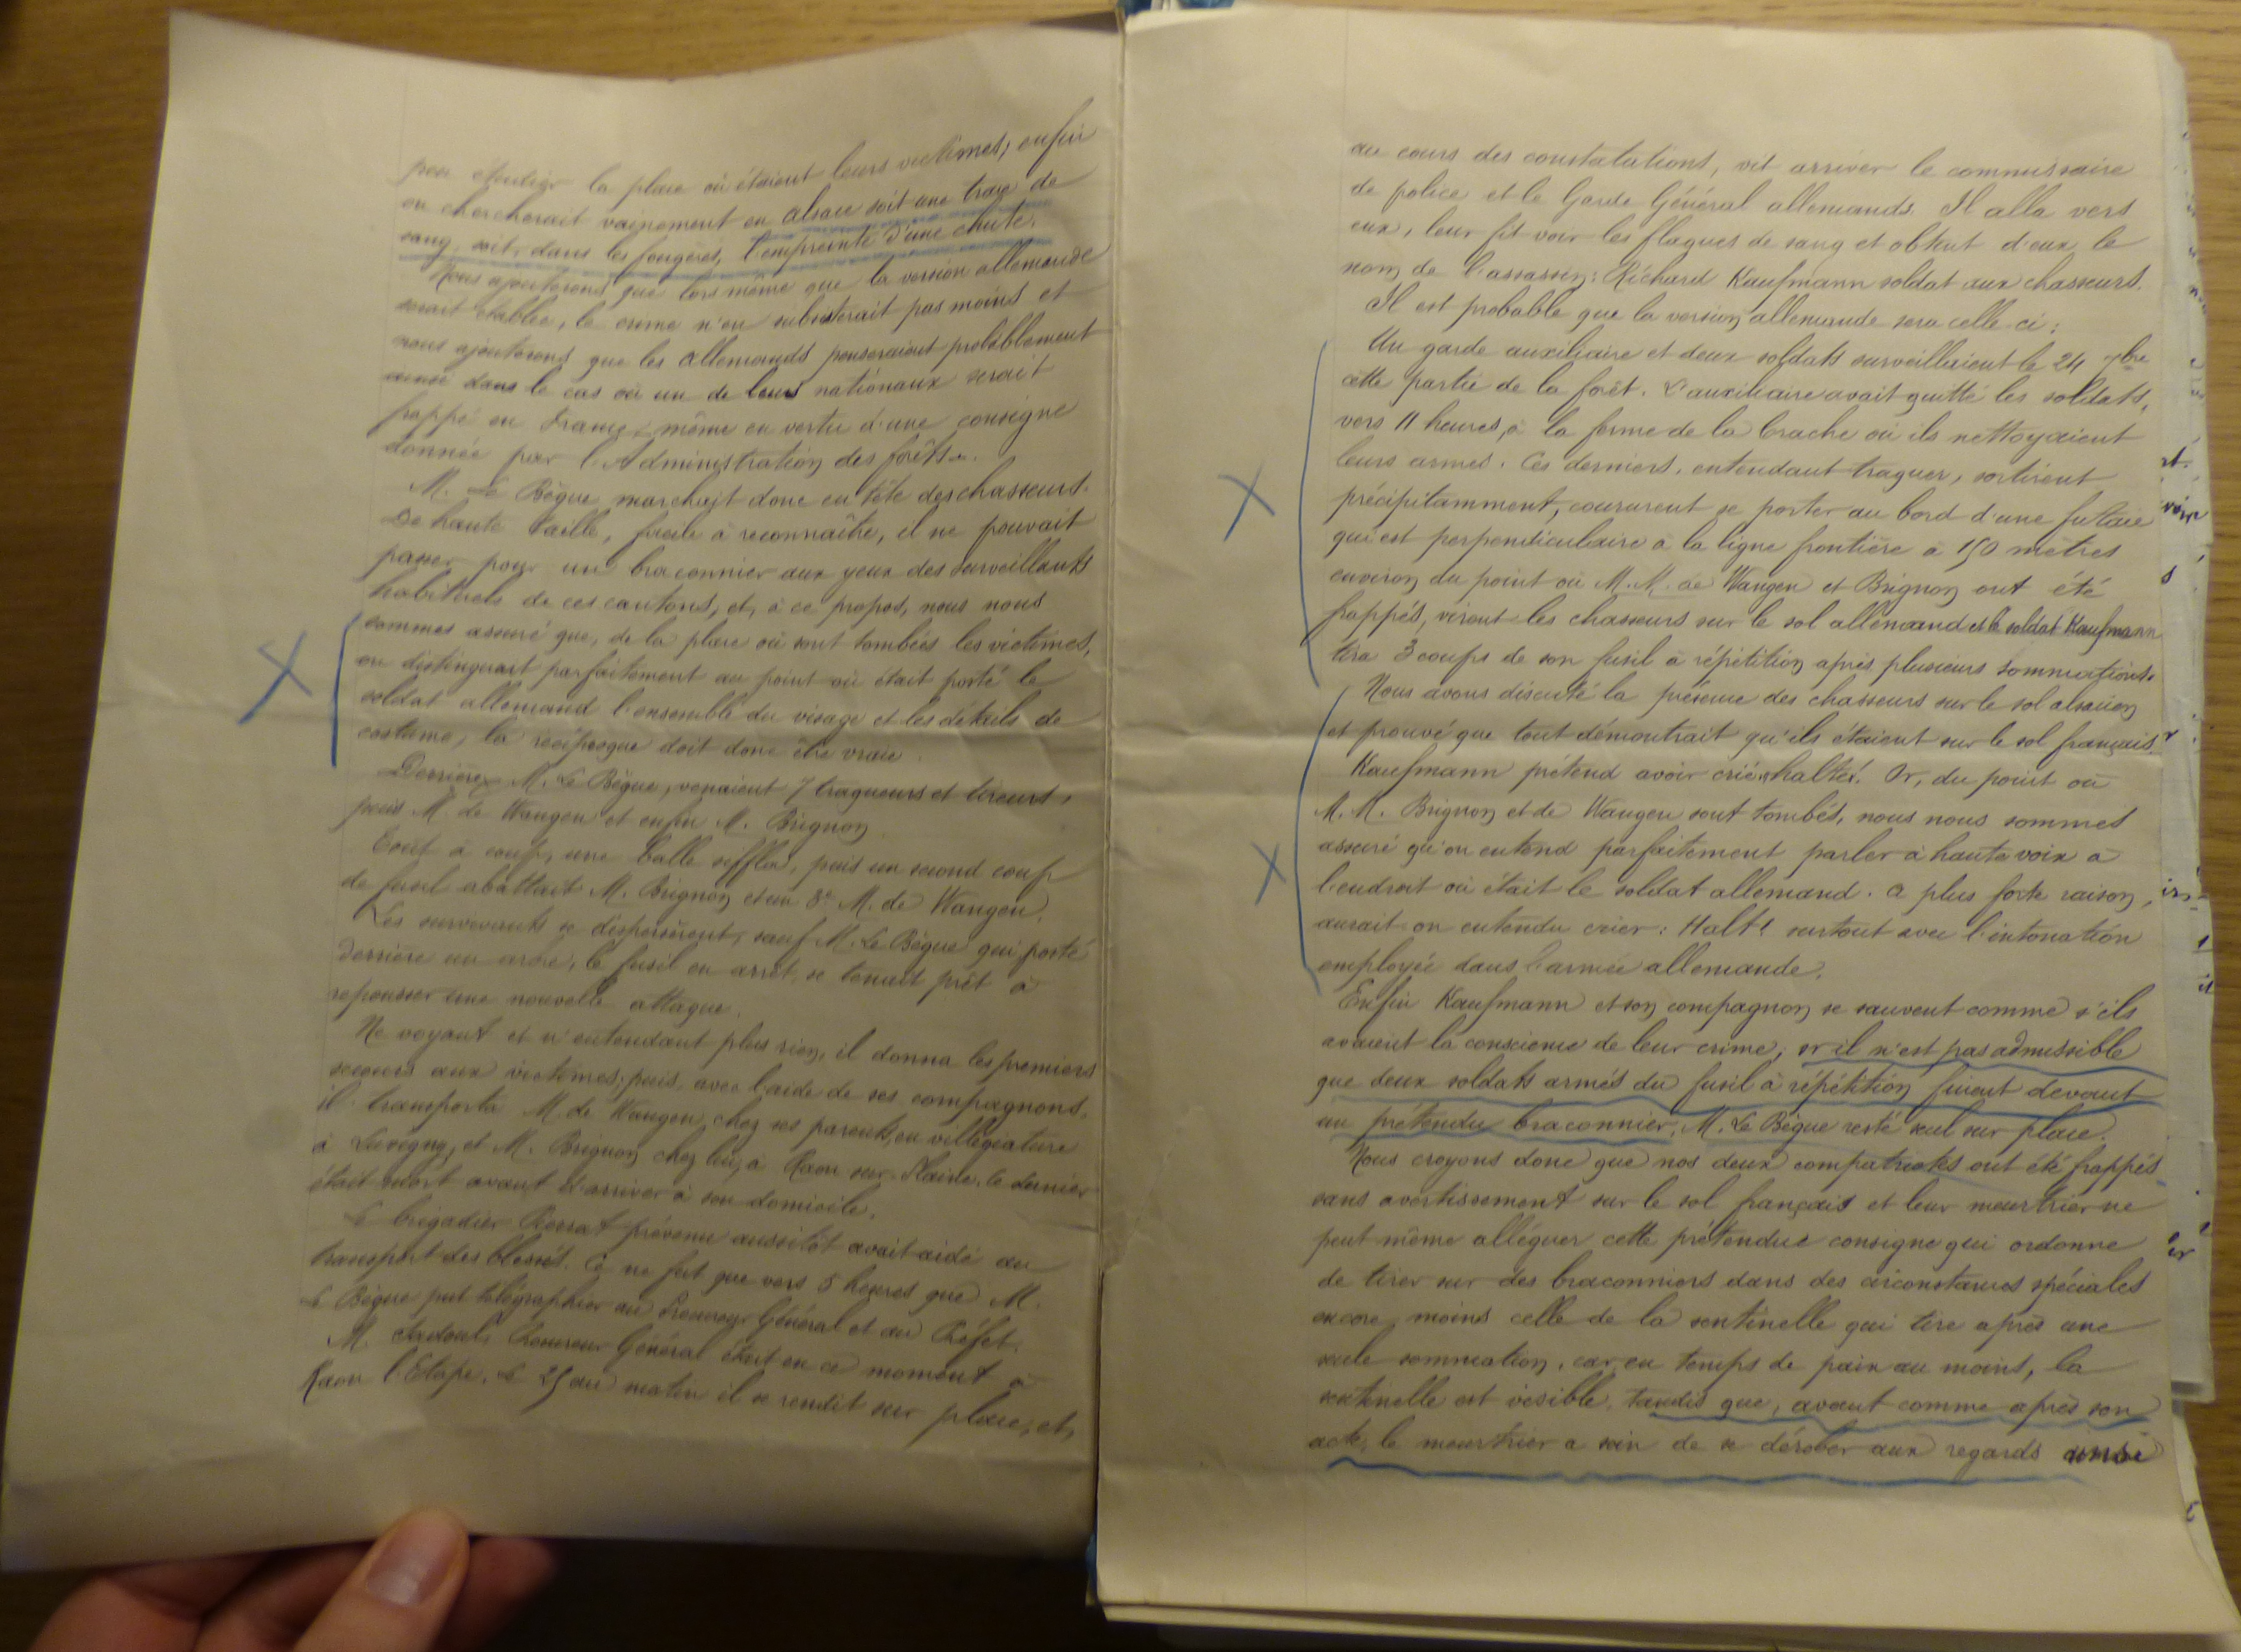 peu étudier la place où étaient leurs victimes, enfin
on chercherait vainement en alsace soit une trace de
sang, soit, dans les fougères, l'empreinte d'une chute.
Nous ajouterons que lors même que la version allemande
serait établie, le crime n'en subsisterait pas moins et
nous ajouterons que les allemands penseraient probablement
ainsi dans le cas où un de leurs nationaux serait
frappé en France, même en vertu d'une consigne
donnée par l'Administration des forêts.
M. Le Bègue marchait donc en tête des chasseurs.
De haute taille, facile à reconnaître, il ne pouvait
passer pour un braconnier aux yeux des surveillants
habituels de ces cantons, et, à ce propos, nous nous
sommes assuré que, de la place où sont tombées les victimes,
on distinguait parfaitement au point où était porté le
soldat allemand l'ensemble du visage et les détails de
costume, la réciproque doit donc être vraie.
Derrière M. Le Bègue, venaient 7 traqueurs et tireurs,
puis M. de Wangen et enfin M. Brignon
Tout à coup, une balle siffla, puis un second coup
de fusil abattait M. Brignon et un 3e M. de Wangen.
Les survivants se dispersèrent, sauf M. Le Bègue qui porté
derrière un arbre, le fusil en arrêt, se tenait prêt à
repousser une nouvelle attaque.
Ne voyant et n'entendant plus rien, il donna les premiers
secours aux victimes; puis, avec l'aide de ses compagnons,
il transporta M. de Wangen chez ses parents, en villégiature
à Luvigny, et M. Brignon chez lui, à Raon sur Plaine. Ce dernier
était mort avant d'arriver à son domicile.
Le brigadier prévenu aussitôt avait aidé au
transport des blessés. Ce ne fut que vers 5 heures que M.
Le Bègue put télégraphier au Procureur Général et au Préfet.
M. Sadoul, Procureur Général était en ce moment à
Raon l'Etape. Le 25 au matin il se rendit sur place, et,
au cours des constatations, vit arriver le commissaire
de police et le Garde Général allemands. Il alla vers
eux, leur fit voir les flaques de sang et obtint d'eux le
nom de l'assassin: Richard Kaufmann soldat aux chasseurs.
Il est probable que la version allemande sera celle-ci:
Un garde auxiliaire et deux soldats surveillaient le 24 7bre
cette partie de la forêt. L'auxiliaire avait quitté les soldats,
vers 11 heures, à la ferme de la brache où ils nettoyaient
leurs armes. Ces derniers, entendant traquer, sortirent
précipitamment, coururent se porter au bord d'une futaie
qui est perpendiculaire à la ligne frontière à 150 mètres
environ du point où M.M. de Wangen et Brignon ont été
frappés, virent les chasseurs sur le sol allemand et le soldat Kaufmann
tira 3 coups de son fusil à répétition après plusieurs sommations.
Nous avons discuté la présence des chasseurs sur le sol alsacien
et prouvé que tout démontrait qu'ils étaient sur le sol français.
Kaufmann prétend avoir crié "halte". Or, du point où
M.M. Brignon et de Wangen sont tombés, nous nous sommes
assuré qu'on entend parfaitement parler à haute voix à
l'endroit où était le soldat allemand. a plus forte raison,
aurait on entendu crier: Halt! surtout avec l'intonation
employée dans l'armée allemande.
Enfin Kaufmann et son compagnon se sauvent comme s'ils
avaient la conscience de leur crime, or il n'est pas admissible
que deux soldats armés du fusil à répétition fuient devant
un prétendu braconnier, M. Le Bègue resté seul sur place.
Nous croyons donc que nos deux compatriotes ont été frappés
sans avertissement sur le sol français et leur meurtrier ne
peut même alléguer cette prétendue consigne qui ordonne
de tirer sur des braconniers dans des circonstances spéciales
encore moins celle de la sentinelle qui tire après une
seule sommation, car, en temps de paix au moins, la
sentinelle est visible, tandis que, avant comme après son
acte, le meurtrier a soin de se dérober aux regards ainsi